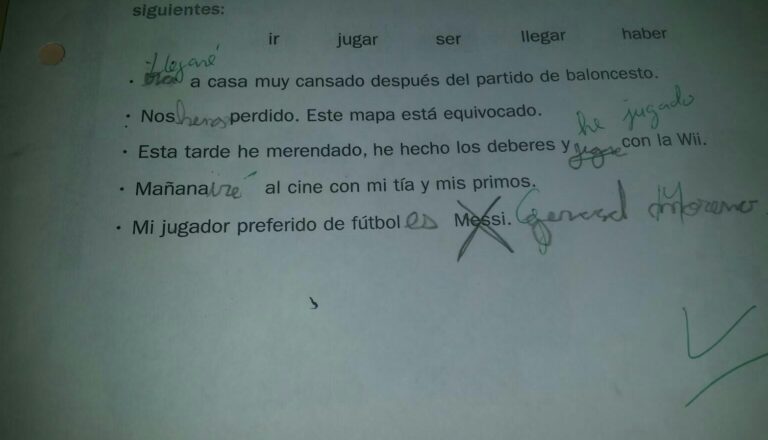 siguientes:
ir jugar ser llegar haber
llegaré
· a casa muy cansado después del partido de baloncesto.
· Nos hemos perdido. Este mapa está equivocado.
he jugado
· Esta tarde he merendado, he hecho los deberes y jugué con la Wii.
· Mañana iré al cine con mi tía y mis primos.
· Mi jugador preferido de fútbol es Messi. Gerard Moreno